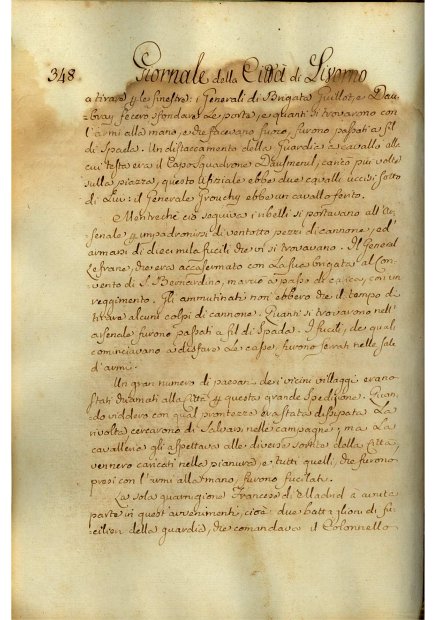 348 Giornale della Città di Livorno
a tirare p le finestre: i Generali di Brigata Guillot, e Dau-
bray fecero sfondare Le porte, e quanti si trovarono con
l'armi alla mano, e che facevano fuoco, furono passati a fil
di Spada. Un distaccamento della Guardia a cavallo alla
cui testa era il Capo Squadrone Daulmenil, caricò più volte
sulla piazza, questo Ufiziale ebbe due cavalli uccisi sotto
di Lui: il Generale Grouchy ebbe un cavallo ferito.
Mentreche ciò seguiva i ribelli si portavano all'Ar-
senale p impadronirsi di ventotto pezzi di cannone, ed
armarsi di dieci mila fucili che vi si trovavano. Il General
Lefranc, che era accasermato con La sua brigata al Con-
vento di S. Bernardino, marciò a passo di carica, con un
reggimento. Gli ammutinati non ebbero che il tempo di
tirare alcuni colpi di cannone. Quanti si trovarono nell'
arsenale furono passati a fil di Spada. I fucili, de quali
cominciavano a disfare Le casse, furono serrati nelle sale
d'armi.
Un gran numero di paesani dei vicini villaggi erano
stati chiamati alla Città p questa grande Spedizione. Quan-
do viddero con qual prontezza era stata dissipata La
rivolta cercarono di Salvarsi nelle campagne; ma La
cavalleria gli aspettava alle diverse sortite della Città,
vennero caricati nella pianura, e tutti quelli, che furono
presi con l'armi alla mano, furono fucilati.
La sola guarnigione Francese di Madrid a avuta
parte in quest'avvenimenti, cioè: due battaglioni di fu-
cilieri della guardia, che comandava il Colonnello